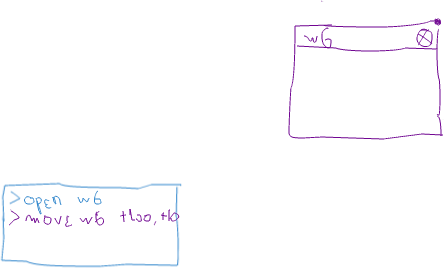 w6
>open w6
>move w6 +100,+10